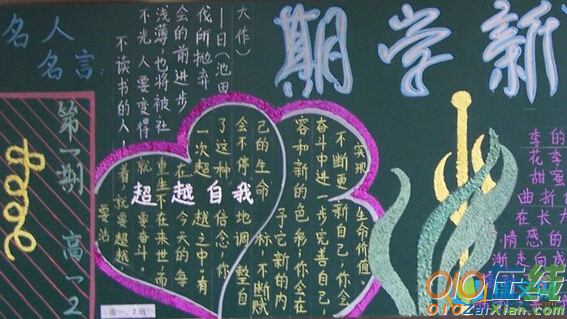 新学期
名人
名言:
不读书的人
不光人要变得
浅薄,也将被社
会的前进步
伐所抛弃
—日(池田
大作)
第一期 高一2
超越自我
要活
着,就要超越,
就要奋斗。
重生不在来世而
在今天的每
一次超越之中。有
了这种信念,你
会不停地调整自
己的生命 标,不断赋
子它新的内
容和新的色彩,你会在
奋斗中进一步完善自己,
不断更新自己,你会
实现生命价值。
季的
花季
甜蜜
曲折
在长大
情感的
渐走向成
高一.2班
010在线
010ZaiXian.com